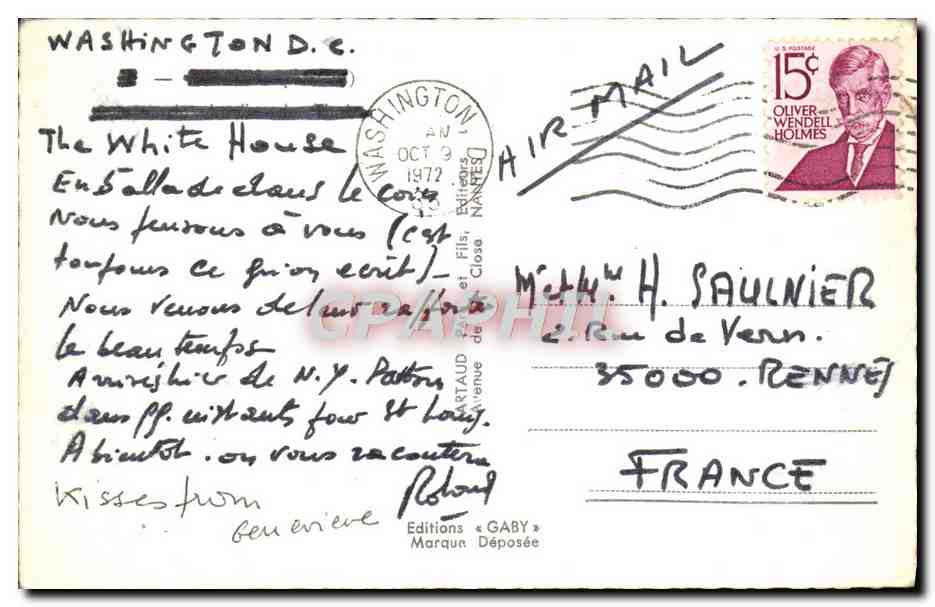 WASHINGTON D.C.
The White House
En ballade dans le coin
Nous pensons à vous (c'est
toujours ce qu'on écrit)-
Nous venons de leur rapporter
le beau temps
Arrivés hier de N.Y. Partons
dans qq. instants pour St Louis.
A bientôt. on vous racontera
Roland
Kisses from
Geneviève
WASHINGTON, D
AM
OCT 9
1972
AIR MAIL
U.S. POSTAGE
15¢
OLIVER
WENDELL
HOLMES
H. SAULNIER
2. Rue de Vern.
35000. RENNES
FRANCE
ARTAUD et Fils, Editeurs
Avenue de Close NANTES
Editions « GABY »
Marque Déposée
CPAPHIL